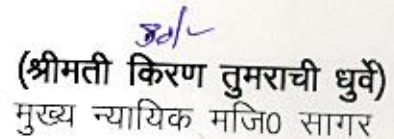 (श्रीमती किरण तुमराची धुर्वे)
मुख्य न्यायिक मजि0 सागर